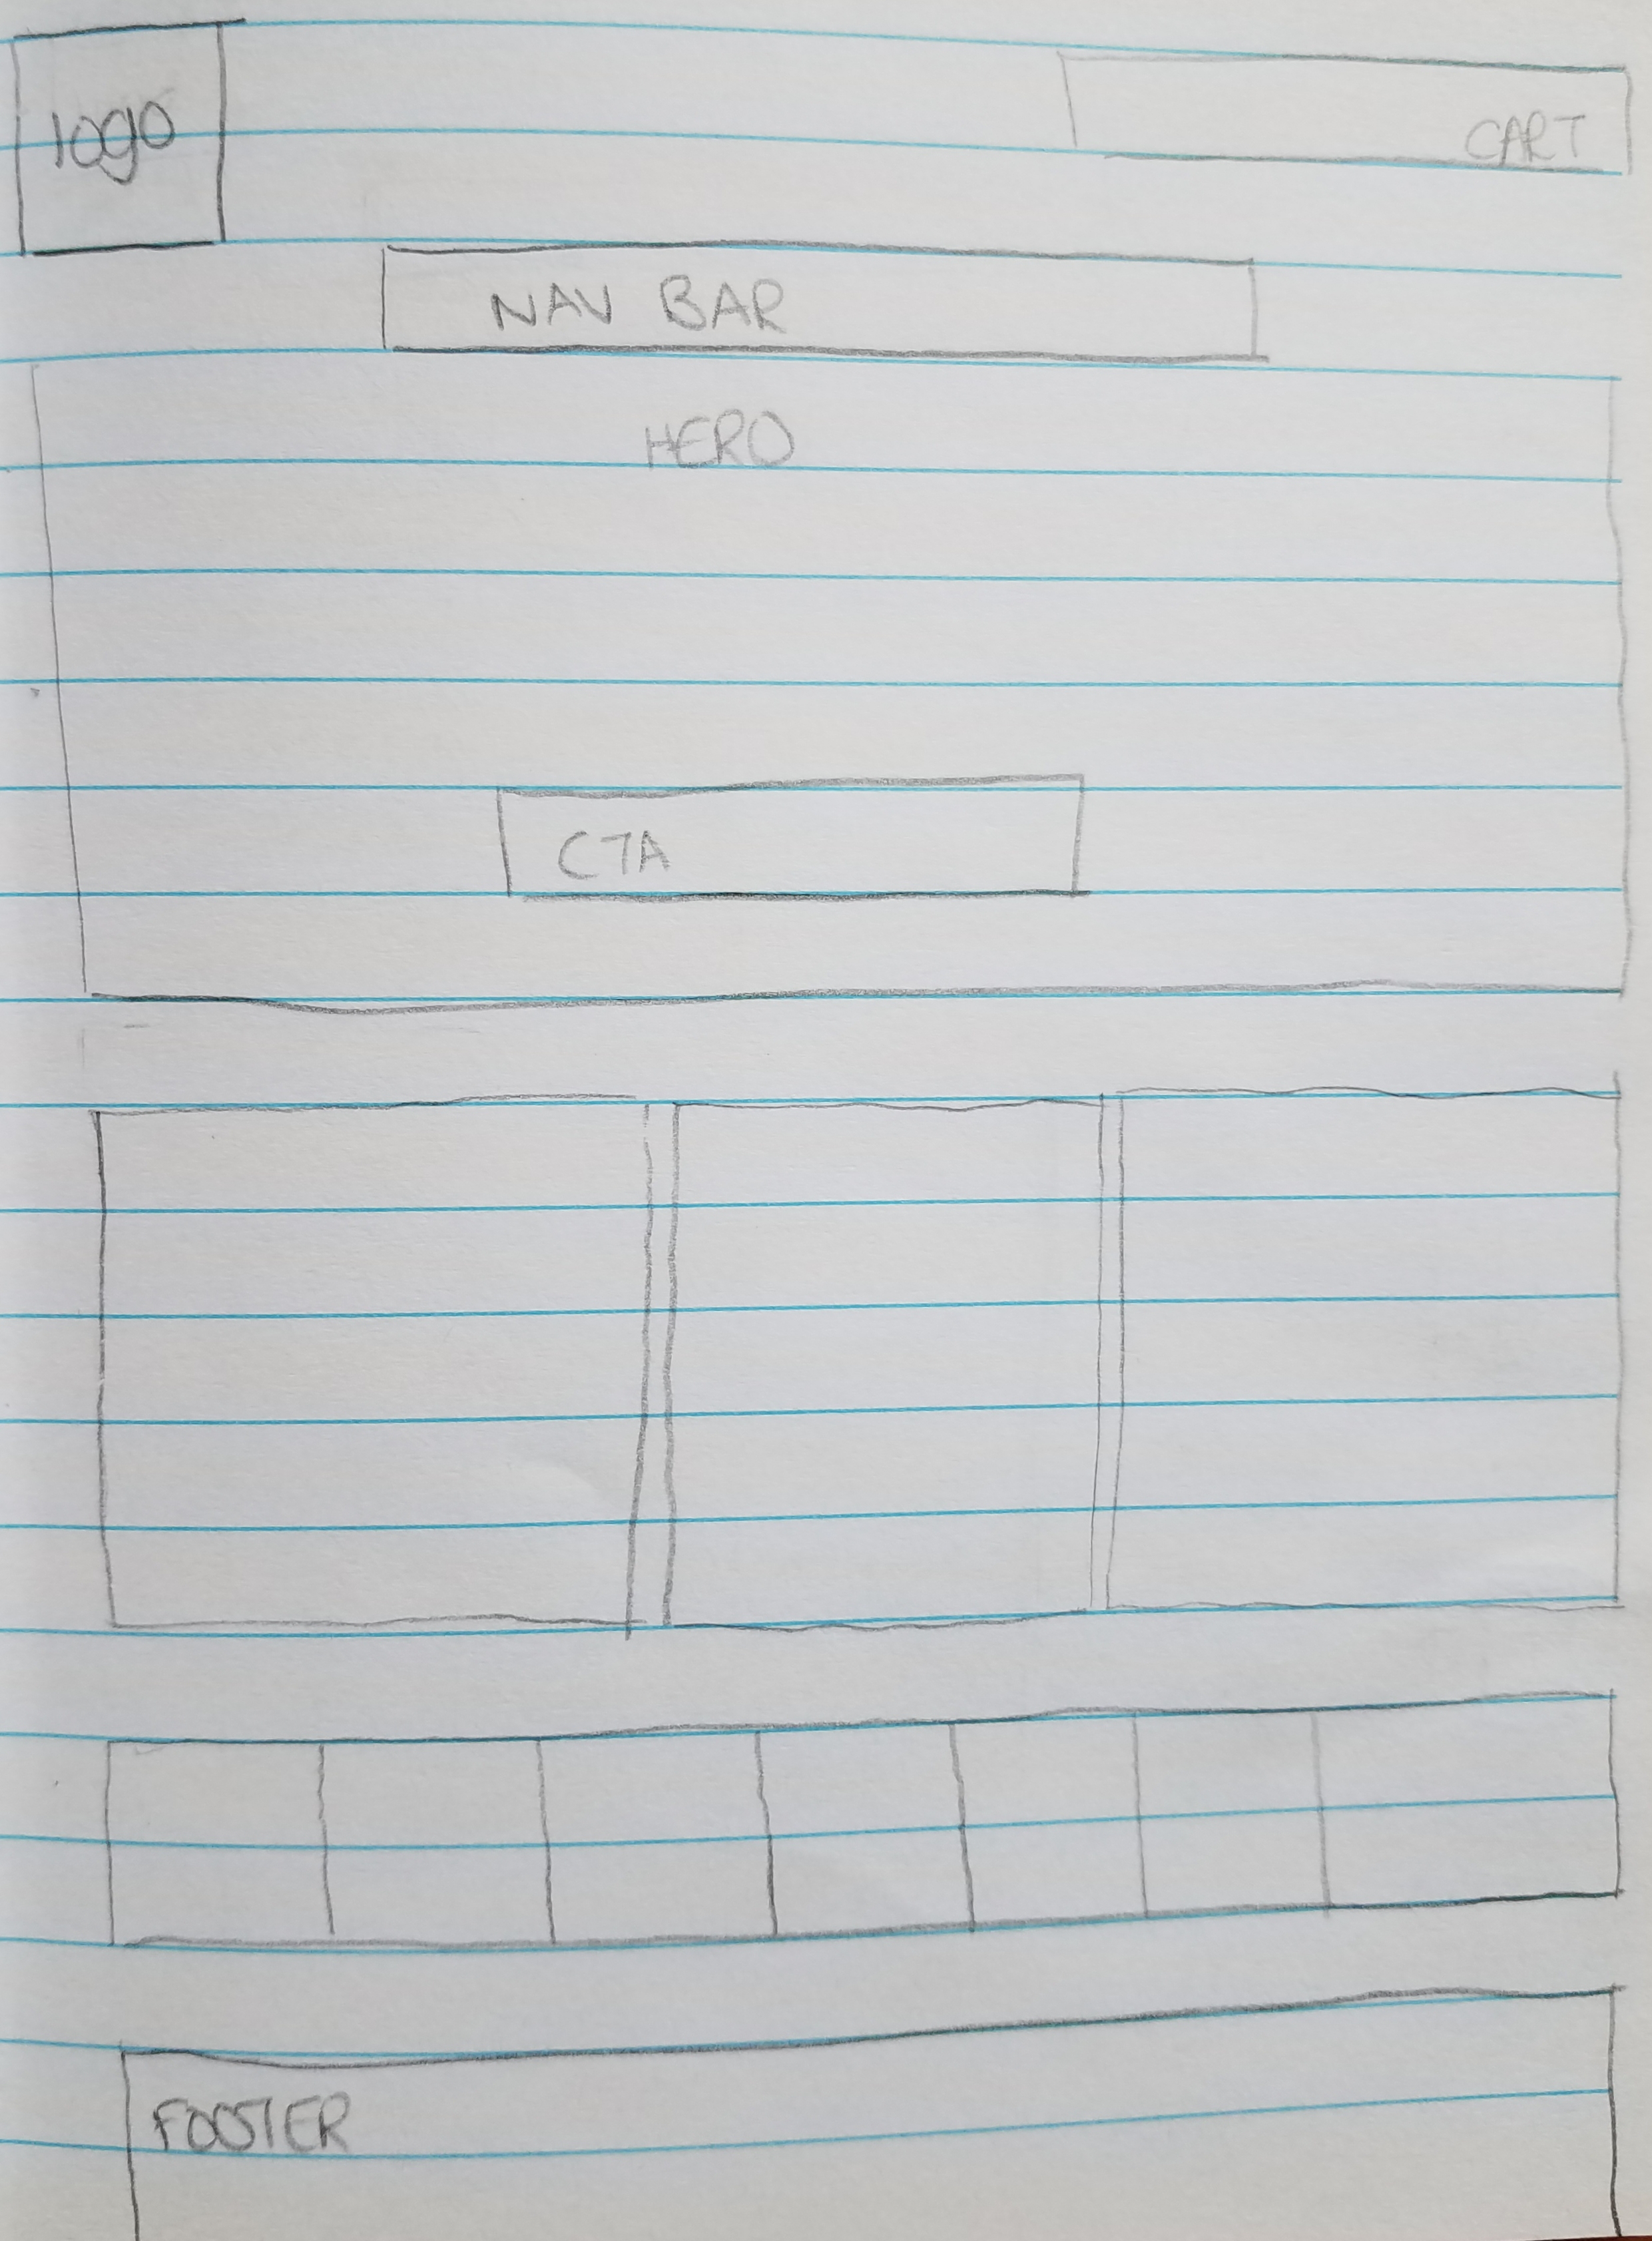 logo
CART
NAV BAR
HERO
CTA
FOOTER